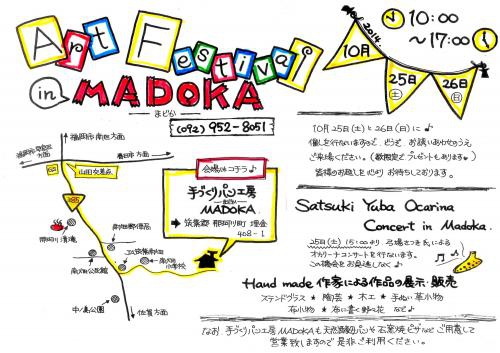 Art Festival
in MADOKA
まどか
(092) 952-8051
in 2014.
10月
25日
(土)
26日
(日)
10:00
~17:00
10月25日(土)と26日(日)に♪
催しを行ないますので、どうぞ お誘いあわせのうえ
ご来場ください。(数限定で プレゼントもあります♥)
皆様のお越しを 心より お待ちしております。
福岡市南区方面
春日市方面
山田交差点
385
中ノ島公園
佐賀方面
会場はコチラ♪
手づくりパン工房
MADOKA
➡ 筑紫郡 那珂川町 埋金
408-1
Satsuki Yaba Ocarina
Concert in Madoka.
25日(土) 15:00より
オカリナコンサートを行ないます。
この機会をお見逃しなく♪
Hand made 作家による作品の展示・販売
ステンドグラス ★ 陶芸 ★ 木工 ★ 手ぬい革小物
布小物 ★ 布に書く野の花 など♪
なお、手づくりパン工房MADOKAも天然酵母パンや石窯焼ピザなどご用意して
営業致しますので 是非ご利用ください。